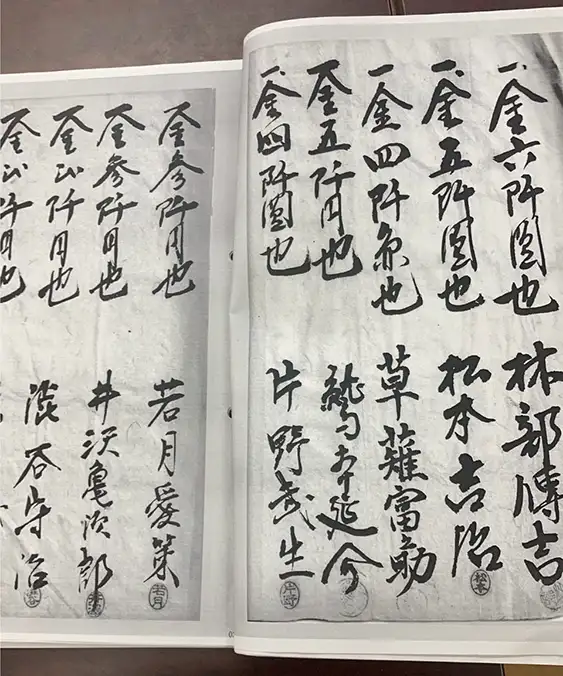 一金六阡圓也 林部傳吉
一金五阡圓也 松本吉治 松本
一金四阡也 草薙富
一金五阡円也 延介
一金四阡圓也 片野武生 片野
一金参阡円也 若月愛策 若月
一金参阡円也 井沢亀次郎
一金阡円也 谷守治
一金阡円也